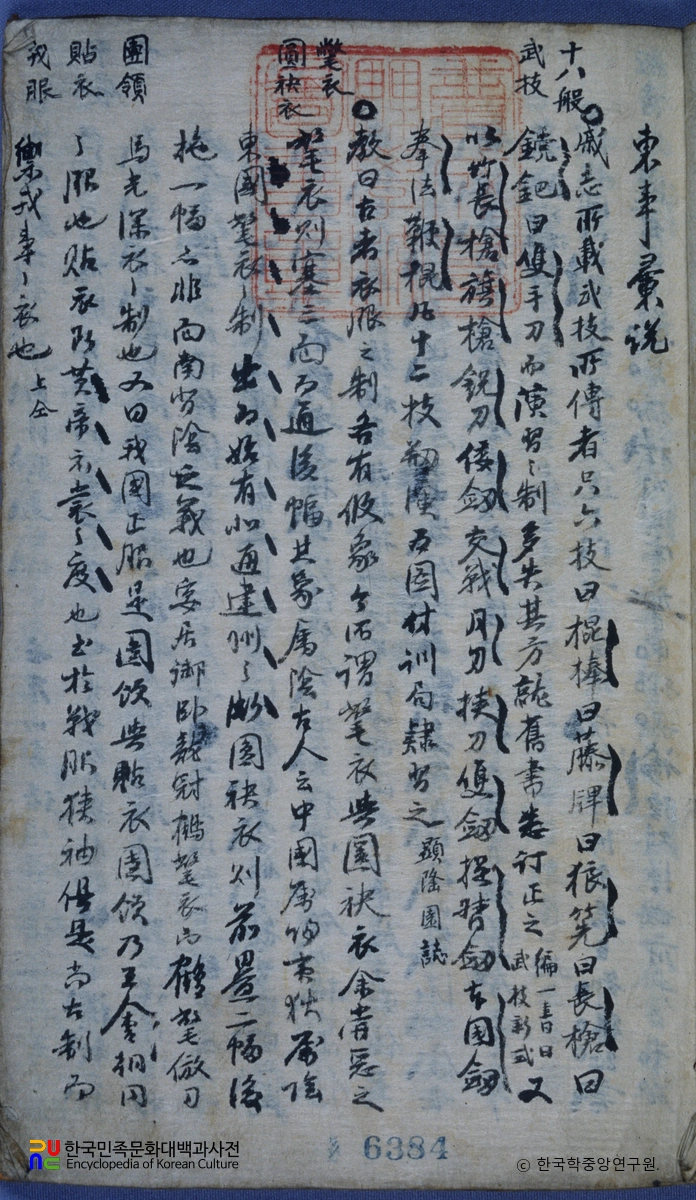 東事彙說
十八般
武技
戚志所載武技所傳者只六技曰棍棒曰藤牌曰狼筅曰長槍曰
鎲鈀曰雙手刀而演習之制多失其方就舊書悉訂正之編一書曰武技新式又
以竹長槍旗槍銳刀倭劍交戰月刀挾刀雙劍提督劍本國劍
拳法鞭棍凡十二技 圖付訓局隸習之顯隆園誌
氅衣
圓袂衣
敎曰古者衣服之制各有倣象今所謂氅衣與圓袂衣余嘗惡之
氅衣則塞三面而通後幅其象屬陰古人云中國屬陽夷狄屬陰
東國氅衣之制出 始有北通建州之 圓袂衣則前疊二幅後
拖一幅 非向南背陰之義也宴居御臥龍冠鶴氅衣而鶴氅倣司
團領
馬光深衣之制也又曰我國正服是團領與貼衣團領乃王會相同
貼衣
之服也貼衣卽黃帝衣裳之度也至於戰服狹袖俱是尚古制而
戎服
樂戎事之衣也上仝
6384
한국민족문화대백과사전
Encyclopedia of Korean Culture
© 한국학중앙연구원.